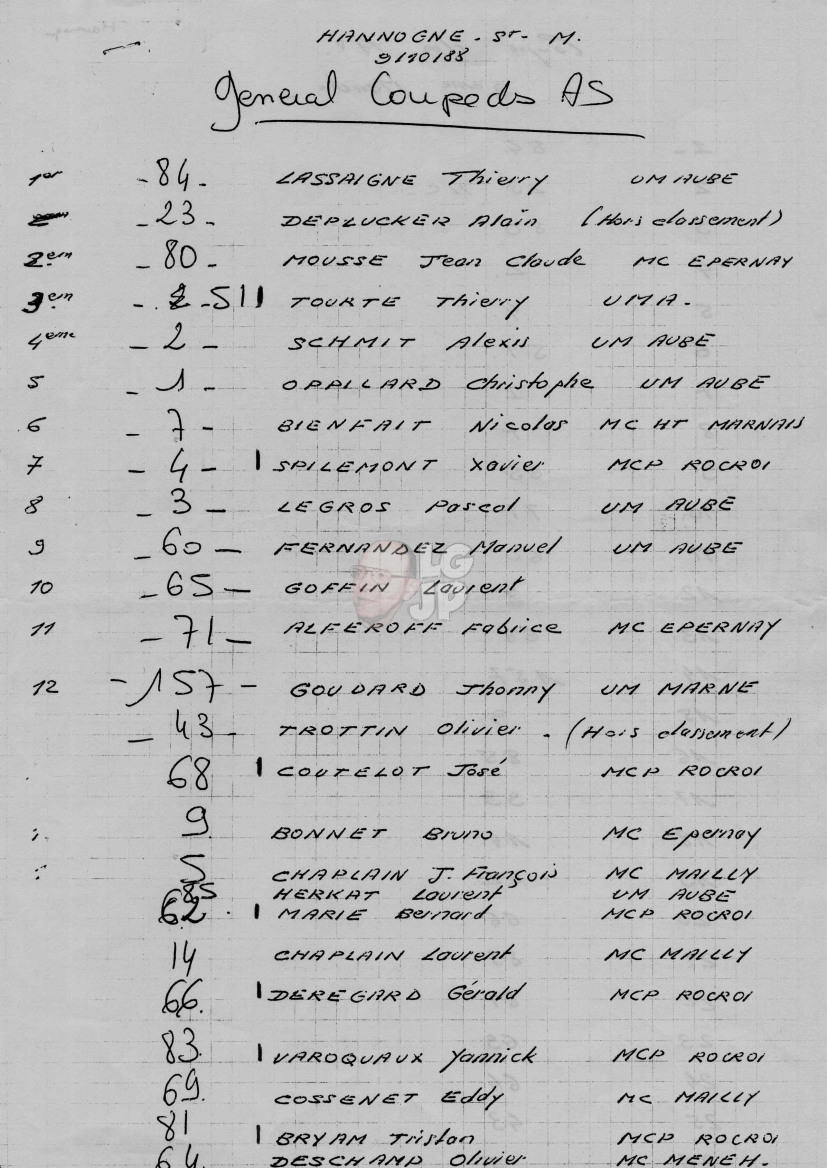 HANNOGNE - St - M.
9/10/88
General Coupeds AS
1er - 84 - LASSAIGNE Thierry UM AUBE
- 23 - DEPLUCKER Alain (Hors classement)
2em - 80 - MOUSSE Jean Claude MC EPERNAY
3em - 51 TOURTE Thierry UMA.
4eme - 2 - SCHMIT Alexis UM AUBE
5 - 1 - OPPILLARD Christophe UM AUBE
6 - 7 - BIENFAIT Nicolas MC HT MARNAIS
7 - 4 - SPILEMONT Xavier MCP ROCROI
8 - 3 - LEGROS Pascal UM AUBE
9 - 60 - FERNANDEZ Manuel UM AUBE
10 - 65 - GOFFIN Laurent
LG
JP
11 - 71 - ALFEROFF Fabrice MC EPERNAY
12 - 157 - GOUDARD Jhonny UM MARNE
- 43 - TROTTIN Olivier - (Hors classement)
68 COUTELOT José MCP ROCROI
9 BONNET Bruno MC Epernay
5 CHAPLAIN J. François MC MAILLY
85 HERKAT Laurent UM AUBE
62 MARIE Bernard MCP ROCROI
14 CHAPLAIN Laurent MC MAILLY
66 DEREGARD Gérald MCP ROCROI
83 VAROQUAUX Yannick MCP ROCROI
69 COSSENET Eddy MC MAILLY
81 BRYAM Tristan MCP ROCROI
64 DESCHAMP Olivier MC MENEH.